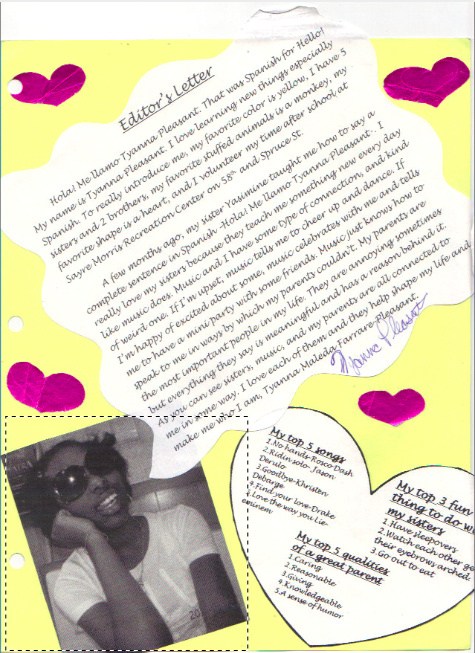 Editor's Letter
Hola! Me llamo Tyanna Pleasant. That was Spanish for Hello!
My name is Tyanna Pleasant. I love learning new things especially
Spanish. To really introduce me, my favorite color is yellow, I have 5
sisters and 2 brothers, my favorite stuffed animals is a monkey, my
favorite shape is a heart, and I volunteer my time after school at
Sayre Morris Recreation Center on 58th and Spruce St.
A few months ago, my sister Yasimine taught me how to say a
complete sentence in Spanish -Hola! Me llamo Tyanna Pleasant-. I
really love my sisters because they teach me something new every day
like music does. Music and I have some type of connection, and kind
of weird one. If I'm upset, music tells me to cheer up and dance. If
I'm happy of excited about some, music celebrates with me and tells
me to have a mini party with some friends. Music just knows how to
speak to me in ways by which my parents couldn't. My parents are
the most important people in my life. They are annoying sometimes
but everything they say is meaningful and has a reason behind it.
As you can see sisters, music and my parents are all connected to
me in some way. I love each of them and they help shape my life and
make me who I am, Tyanna Maleda Farrare Pleasant.
Tyanna Pleasant
My top 5 songs
1.No hands-Rosco Dash
2.Ridin solo- Jason
Derulo
3.Goodbye-Khristen
Debarge
4.Find your love-Drake
Love the way you Lie-
eminem
My top 5 qualities
of a great parent
1.Caring
2.Reasonable
3.Giving
4.Knowledgeable
5.A sense of humor
My top 3 fun
thing to do w
my sisters
1.Have sleepovers
2.Watch each other ge
their eyebrows arched
3.Go out to eat